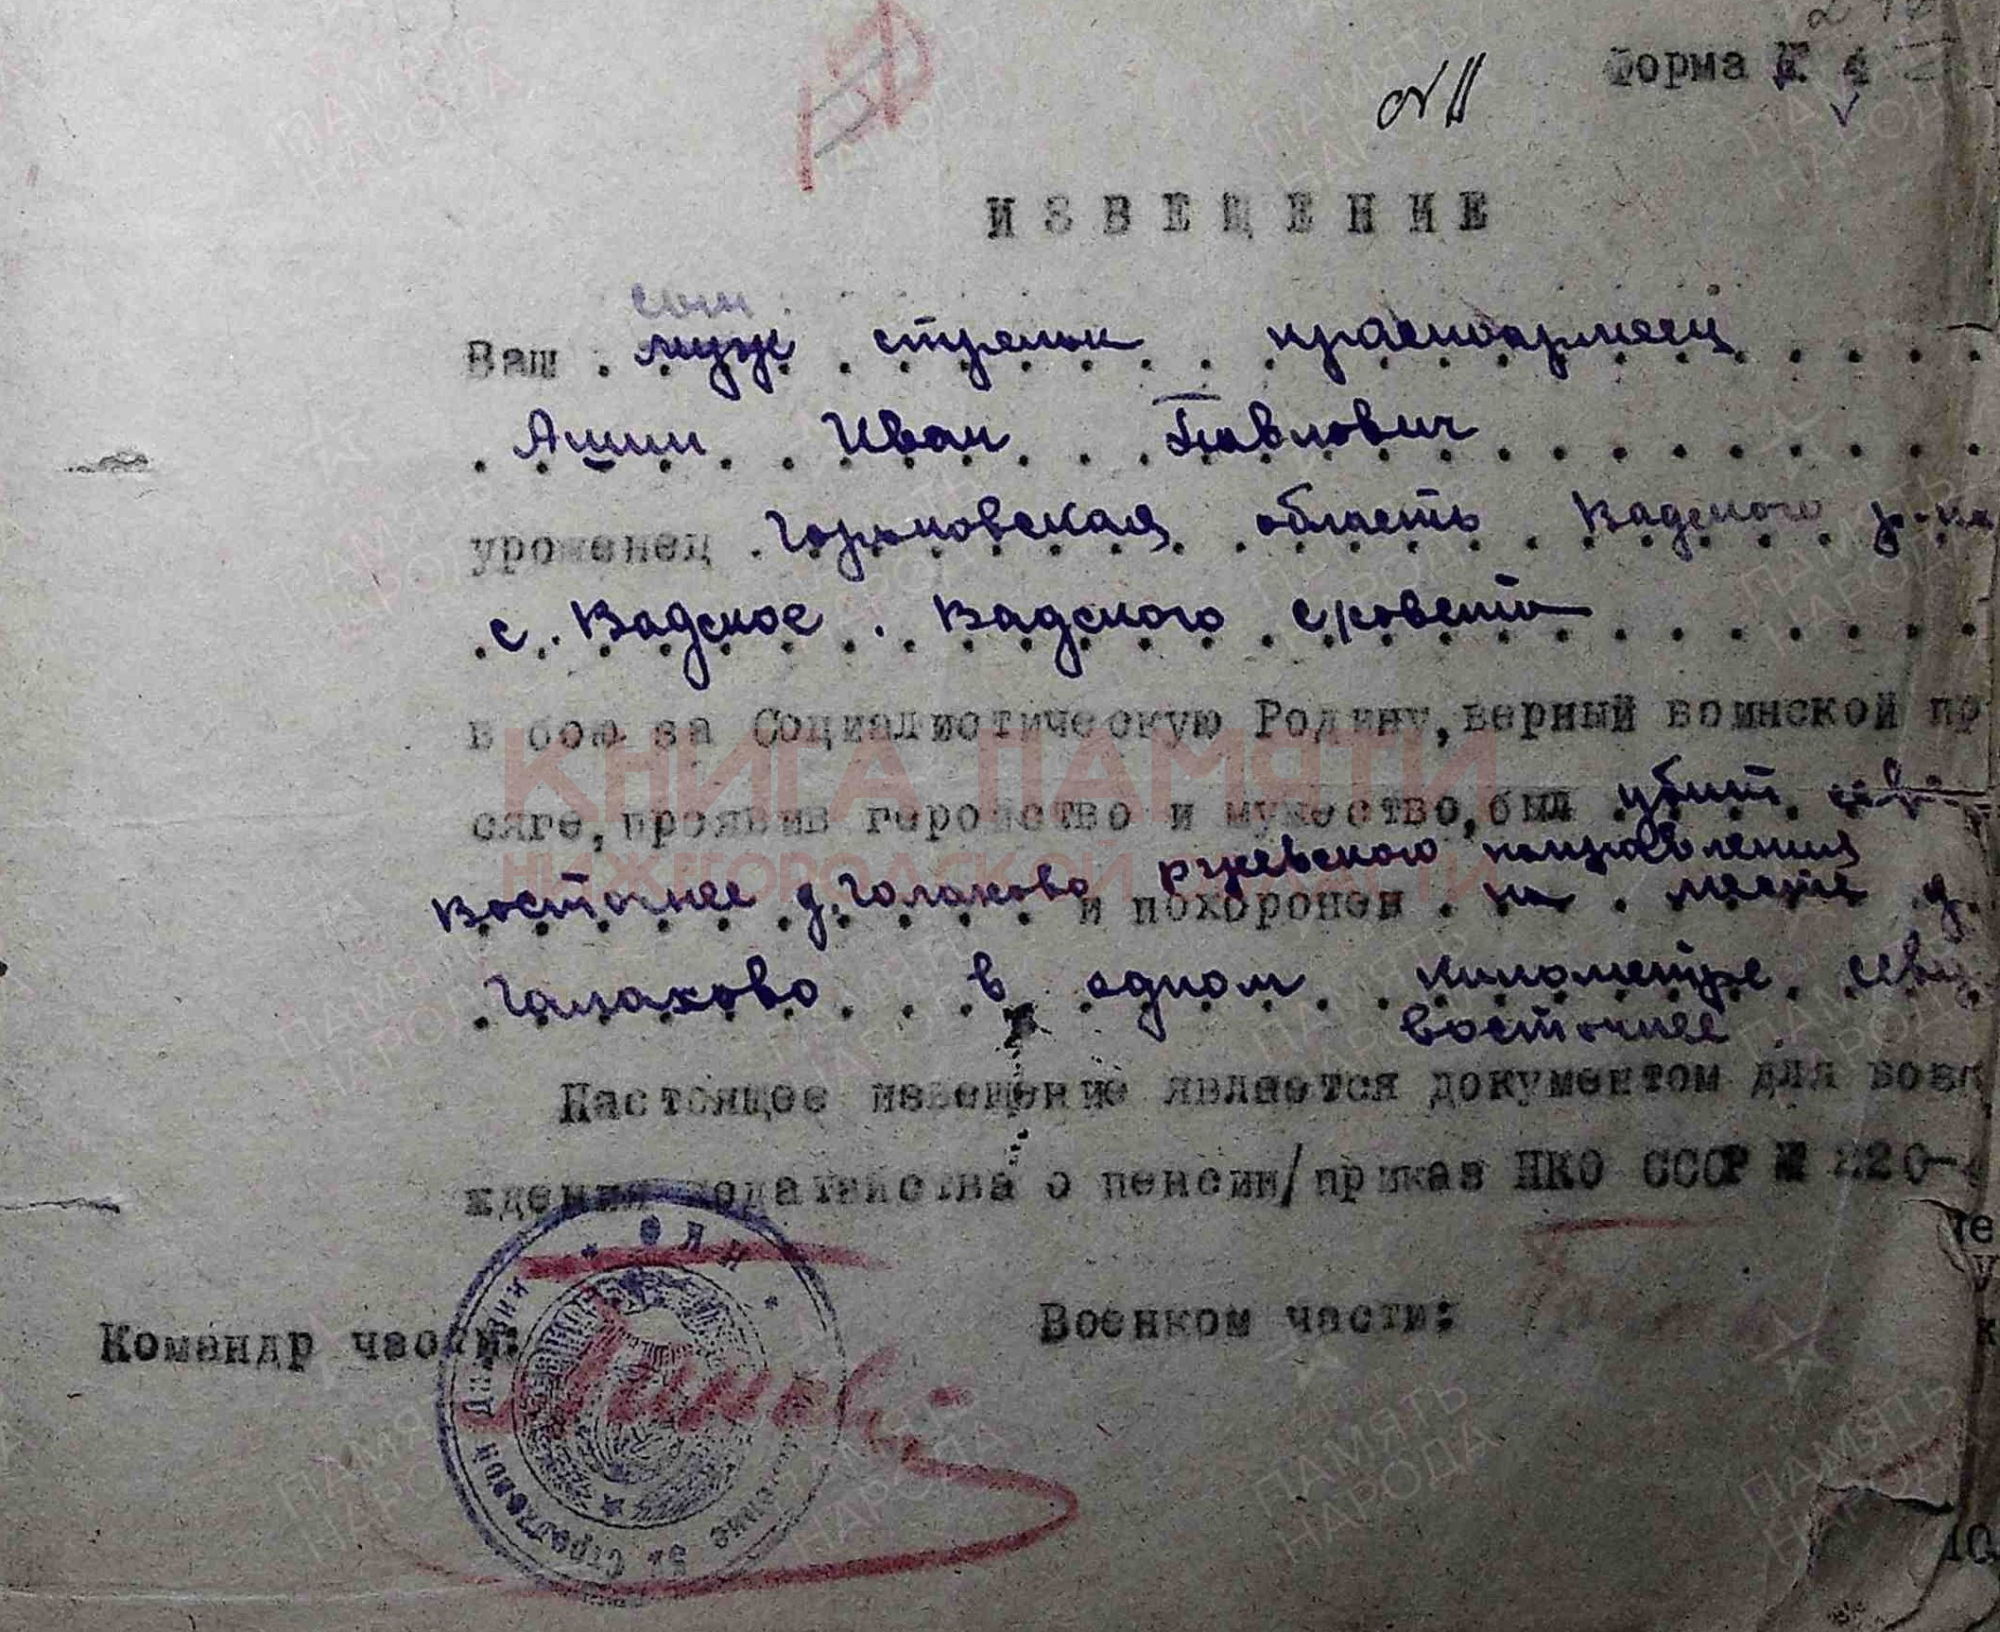 Форма № 4
№ 11
ИЗВЕЩЕНИЕ
сын
Ваш муж стрелок красноармеец
Ашин Иван Павлович
уроженец Горьковская область Вадского р-на
с. Вадское Вадского с/совета
в бою за Социалистическую Родину, верный воинской пр
сяге, проявив геройство и мужество, был убит
восточнее д. Галахово ржевского направления
и похоронен на месте д.
Галахово в одном километре
восточнее
Настоящее извещение является документом для возб
ждения ходатайства о пенсии/приказ НКО СССР № 220
Командр части:
Военком части:
Стрелковой Дивизии
КНИГА ПАМЯТИ
НИЖЕГОРОДСКОЙ ОБЛАСТИ
ПАМЯТЬ НАРОДА